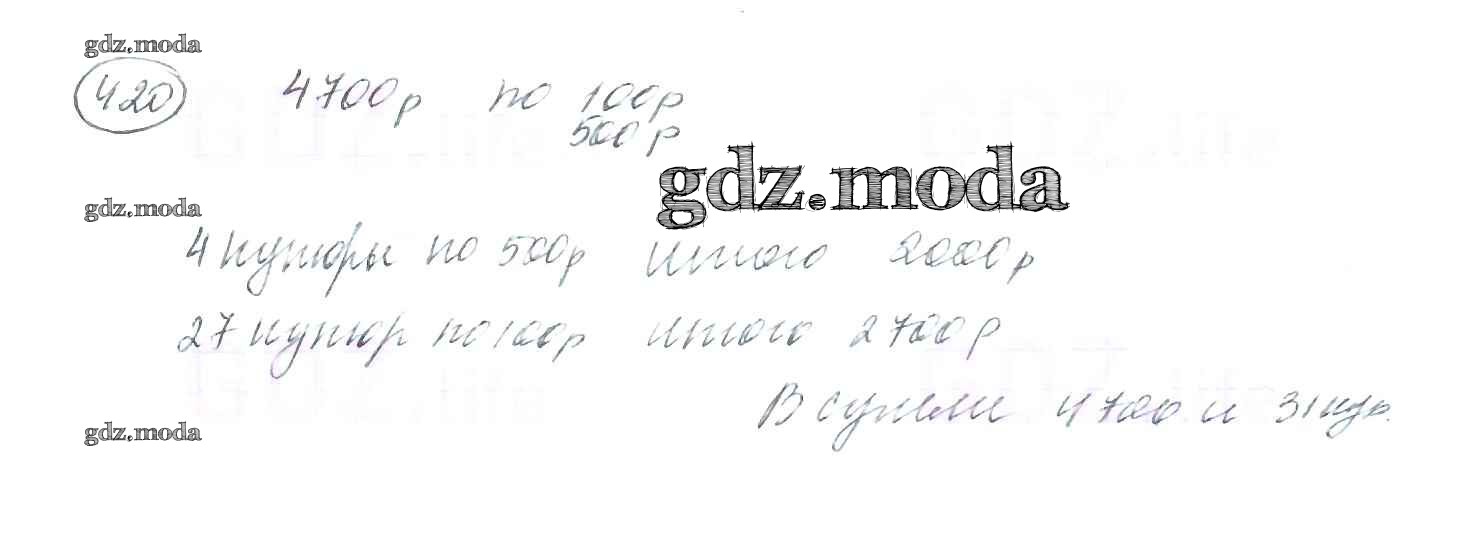 gdz.moda
420 4700р по 100р
500р
gdz.moda
gdz.moda
4 купюры по 500р итого 2000р
27 купюр по 100р итого 2700р
В сумме 4700 и 31 куп.
gdz.moda